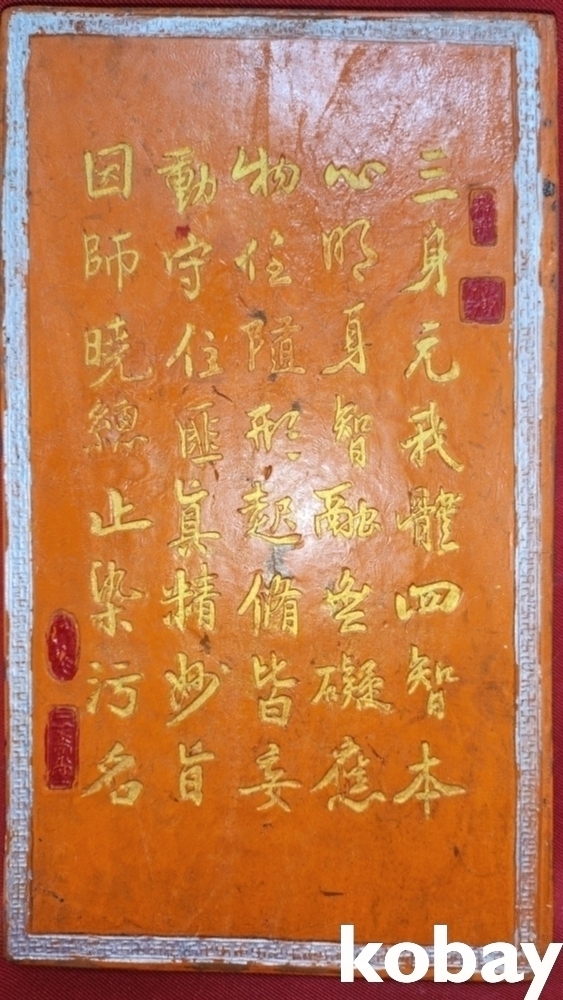 三身元我體四智本
心明身智融無礙應
物任隨形起脩皆妄
動守住匪真精妙旨
因師曉總亡染污名
kobay